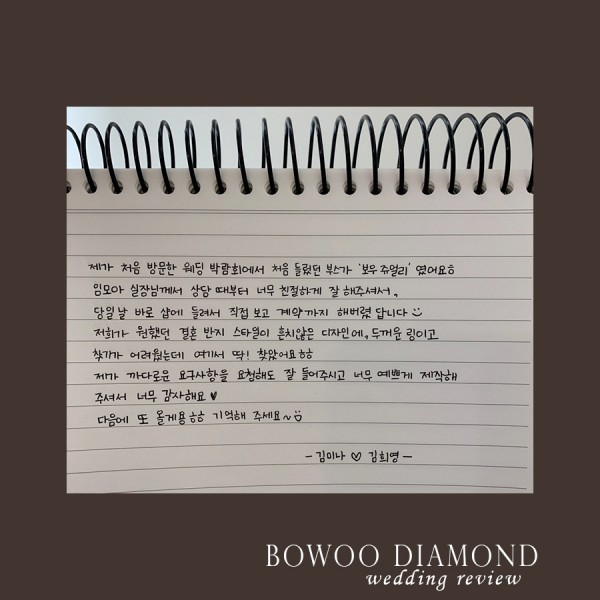 제가 처음 방문한 웨딩 박람회에서 처음 들렸던 부스가 '보우 쥬얼리' 였어요ㅎ
임모아 실장님께서 상담 때부터 너무 친절하게 잘 해주셔서,
당일날 바로 샵에 들려서 직접 보고 계약까지 해버렸답니다 ☺
저희가 원했던 결혼 반지 스타일이 흔치않은 디자인에, 두꺼운 링이고
찾기가 어려웠는데 여기서 딱! 찾았어요ㅎㅎ
제가 까다로운 요구사항을 요청해도 잘 들어주시고 너무 예쁘게 제작해
주셔서 너무 감사해요 ♥
다음에 또 올게용ㅎㅎ 기억해 주세요~☺
- 김미나 ♡ 김희영 -
BOWOO DIAMOND
wedding review